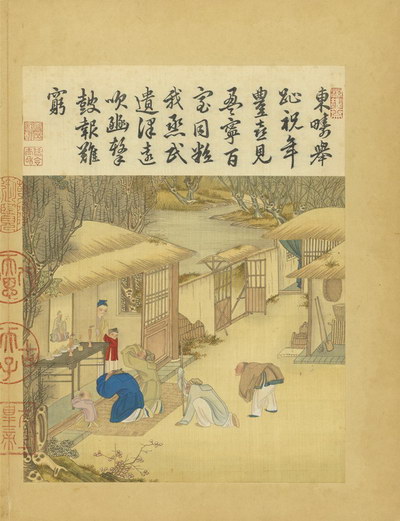 東疇舉
趾祝年
豐喜見
盈寧百
室同粒
我烝民
遺澤遠
吹豳擊
鼓報難
窮